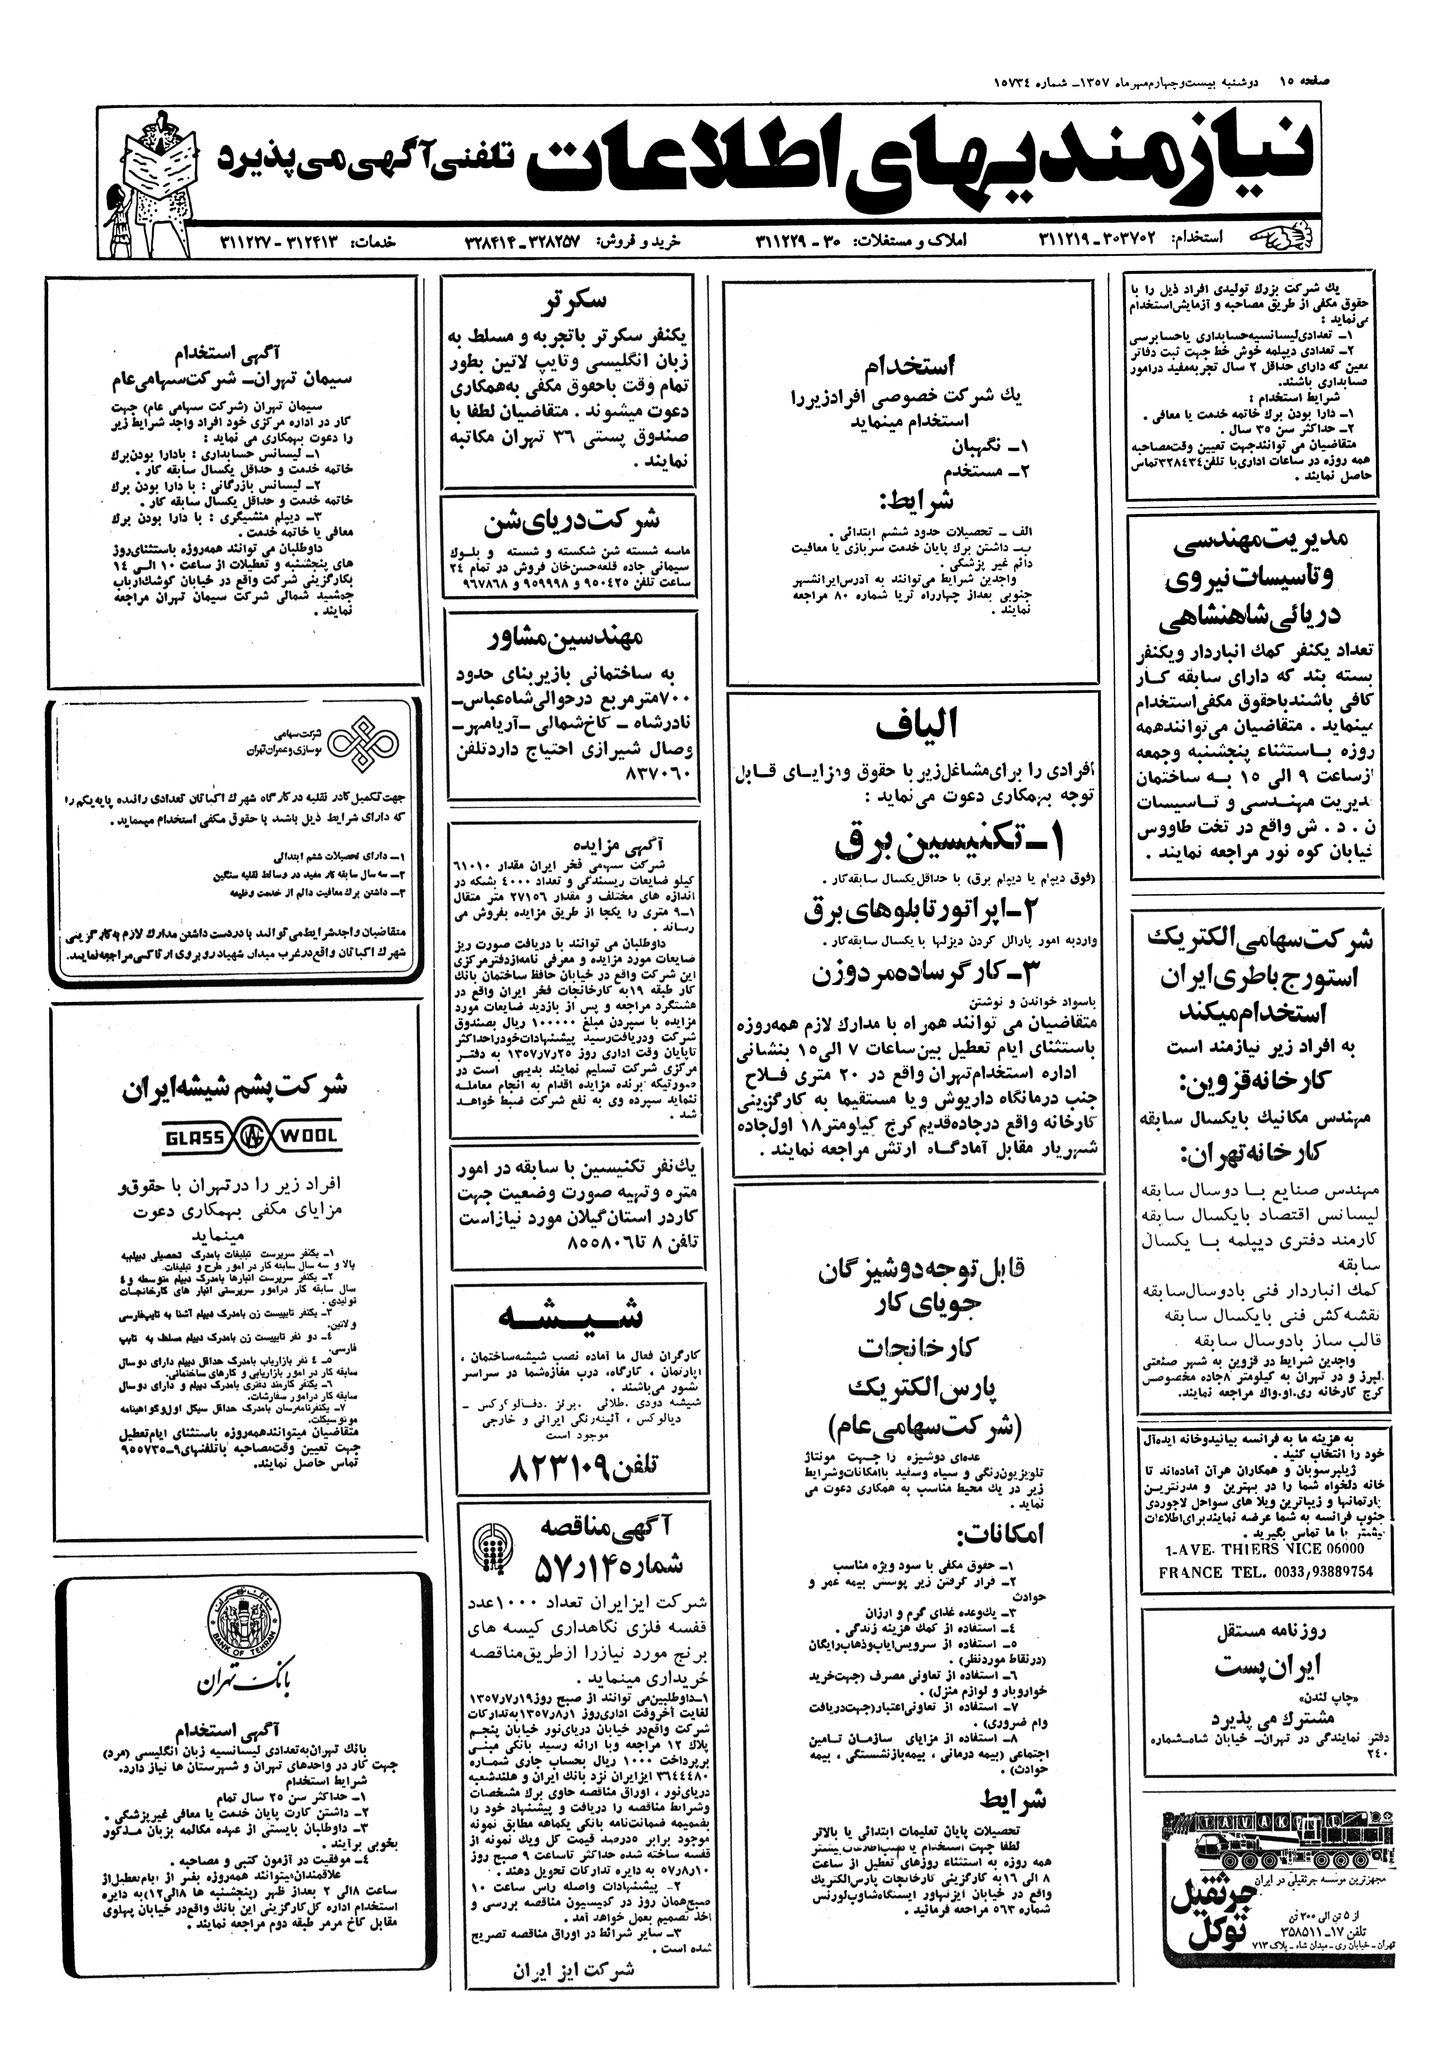 صفحه ۱۵ دوشنبه بیست‌و‌چهارم‌مهرماه ۱۳۵۷ـ شماره ۱۵۷۳۴
نیازمندیهای اطلاعات تلفنی آگهی می‌پذیرد
استخدام: ۳۰۳۷۰۲ـ۳۱۱۲۱۹
املاک و مستغلات: ۳۰ـ۳۱۱۲۲۹
خرید و فروش: ۳۲۸۲۵۷ـ۳۲۸۴۱۴
خدمات: ۳۱۲۴۱۳ـ۳۱۱۲۳۷
یك شركت بزرك تولیدی افراد ذیل را با
حقوق مکفی از طریق مصاحبه و آزمایش‌استخدام
می‌نماید :
۱ـ تعدادی‌لیسانسیه‌حسابداری یاحسابرسی
۲ـ تعدادی دیپلمه خوش خط جهت ثبت دفاتر
معین که دارای حداقل ۲ سال تجربه‌مفید درامور
حسابداری باشند.
شرایط استخدام :
۱ـ دارا بودن برك خاتمه خدمت یا معافی .
۲ـ حداکثر سن ۳۵ سال .
متقاضیان می توانندجهت تعیین وقت‌مصاحبه
همه روزه در ساعات اداری‌با تلفن‌۳۲۸۴۳۴تماس
حاصل نمایند .
مدیریت‌مهندسی
وتاسیسات نیروی
دریائی شاهنشاهی
تعداد یکنفر کمك انباردار ویکنفر
بسته بند که دارای سابقه کار
کافی باشندباحقوق مکفی‌استخدام
مینماید . متقاضیان می‌توانندهمه
روزه باستثناء پنجشنبه وجمعه
ازساعت ۹ الی ۱۵ به ساختمان
مدیریت مهندسی و تاسیسات
ن . د . ش واقع در تخت طاووس
خیابان کوه نور مراجعه نمایند .
شرکت‌سهامی‌الکتریك
استورج‌باطری‌ایران
استخدام‌میکند
به افراد زیر نیازمند است
کارخانه‌قزوین:
مهندس مکانیك بایکسال سابقه
کارخانه‌تهران:
مهندس صنایع با دوسال سابقه
لیسانس اقتصاد بایکسال سابقه
کارمند دفتری دیپلمه با یکسال
سابقه
کمك انباردار فنی بادوسال‌سابقه
نقشه‌کش فنی بایکسال سابقه
قالب ساز بادوسال سابقه
واجدین شرایط در قزوین به شهر صنعتی
البرز و در تهران به کیلومتر ۸جاده مخصوص
کرج کارخانه ری.او.واك مراجعه نمایند.
به هزینه ما به فرانسه بیائیدوخانه ایده‌آل
خود را انتخاب کنید .
ژیلبرسوبان و همکاران هرآن آماده‌اند تا
خانه دلخواه شما را در بهترین و مدرنترین
آپارتمانها و زیباترین ویلا های سواحل لاجوردی
جنوب فرانسه به شما عرضه نمایندبرای‌اطلاعات
بیشتر با ما تماس بگیرید .
1-AVE. THIERS NICE 06000
FRANCE TEL. 0033/93889754
روزنامه مستقل
ایران پست
«چاپ لندن»
مشترك می پذیرد
دفتر نمایندگی در تهران- خیابان شاه-شماره
۲۴۰
TAVAKOL
مجهزترین موسسه جرثقیلی در ایران
جرثقیل
توکل
از ۵ تن الی ۲۰۰ تن
تلفن ۱۷ـ۳۵۸۵۱۱
تهران - خیابان ری - میدان شاه - پلاک ۷۱۳
استخدام
یك شرکت خصوصی افرادزیررا
استخدام مینماید
۱ـ نگهبان
۲ـ مستخدم
شرایط:
الف ـ تحصیلات حدود ششم ابتدائی .
ب‌ـ داشتن برك پایان خدمت سربازی یا معافیت
دائم غیر پزشکی .
واجدین شرایط می‌توانند به آدرس‌ایرانشهر
جنوبی بعداز چهارراه ثریا شماره ۸۰ مراجعه
نمایند .
الیاف
افرادی را برای‌مشاغل‌زیر با حقوق ومزایای قابل
توجه بهمکاری دعوت می‌نماید :
۱ـ تکنیسین برق
(فوق دیپلم یا دیپلم برق) با حداقل‌یکسال سابقه‌کار .
۲ـاپراتورتابلوهای برق
واردبه امور پارالل کردن دیزلها با یکسال سابقه‌کار .
۳ـ کارگرساده‌مردوزن
باسواد خواندن و نوشتن
متقاضیان می توانند همراه با مدارك لازم همه‌روزه
باستثنای ایام تعطیل بین‌ساعات ۷ الی‌۱۵ بنشانی
اداره استخدام‌تهران واقع در ۲۰ متری فلاح
جنب درمانگاه داریوش ویا مستقیما به کارگزینی
کارخانه واقع درجاده‌قدیم کرج کیلومتر۱۸ اول‌جاده
شهریار مقابل آمادگاه ارتش مراجعه نمایند .
قابل توجه دوشیزگان
جویای کار
کارخانجات
پارس الکتریك
(شرکت سهامی عام)
عده‌ای دوشیزه را جهت مونتاژ
تلویزیون‌رنگی و سیاه وسفید باامکانات‌وشرایط
زیر در یك محیط مناسب به همکاری دعوت می
نماید .
امکانات:
۱ـ حقوق مکفی با سود ویژه مناسب
۲ـ قرار گرفتن زیر پوشش بیمه عمر و
حوادث
۳ـ یك‌وعده غذای گرم و ارزان
۴ـ استفاده از کمك هزینه زندگی .
۵ـ استفاده از سرویس‌ایاب‌وذهاب‌رایگان
(درنقاط موردنظر) .
۶ـ استفاده از تعاونی مصرف (جهت‌خرید
خواروبار و لوازم منزل) .
۷ـ استفاده از تعاونی‌اعتبار(جهت‌دریافت
وام ضروری) .
۸ـ استفاده از مزایای سازمان تامین
اجتماعی (بیمه درمانی ، بیمه‌بازنشستگی ، بیمه
حوادث) .
شرایط
تحصیلات پایان تعلیمات ابتدائی یا بالاتر
لطفا جهت استخدام یا کسب‌اطلاعات بیشتر
همه روزه به استثناء روزهای تعطیل از ساعت
۸ الی ۱۶ به کارگزینی کارخانجات پارس‌الکتریك
واقع در خیابان ایزنهاور ایستگاه‌شاپ‌لورنس
شماره ۵۶۳ مراجعه فرمائید .
سکرتر
یکنفر سکرتر باتجربه و مسلط به
زبان انگلیسی وتایپ لاتین بطور
تمام وقت باحقوق مکفی به‌همکاری
دعوت میشوند . متقاضیان لطفا با
صندوق پستی ۳۶ تهران مکاتبه
نمایند .
شرکت دریای شن
ماسه شسته شن شکسته و شسته و بلوك
سیمانی جاده قلعه‌حسن‌خان فروش در تمام ۲۴
ساعت تلفن ۹۵۰۴۲۵ و ۹۵۹۹۹۸ و ۹۶۷۸۶۸
مهندسین مشاور
به ساختمانی بازیربنای حدود
۷۰۰مترمربع درحوالی‌شاه‌عباس‌ـ
نادرشاه ـ کاخ‌شمالی ـ آریامهرـ
وصال شیرازی احتیاج داردتلفن
۸۳۷۰۶۰
آگهی مزایده
شرکت سهامی فخر ایران مقدار ۶۱۰۱۰
کیلو ضایعات ریسندگی و تعداد ۴۰۰۰ بشکه در
اندازه های مختلف و مقدار ۲۷۱۵۶ متر متقال
۱ـ۹ متری را یکجا از طریق مزایده بفروش می
رساند .
داوطلبان می توانند با دریافت صورت ریز
ضایعات مورد مزایده و معرفی نامه‌ازدفترمرکزی
این شرکت واقع در خیابان حافظ ساختمان بانك
کار طبقه ۱۹به کارخانجات فخر ایران واقع در
هشتگرد مراجعه و پس از بازدید ضایعات مورد
مزایده با سپردن مبلغ ۱۰۰۰۰۰ ریال بصندوق
شرکت ودریافت‌رسید پیشنهادات‌خودراحداکثر
تاپایان وقت اداری روز ۱۳۵۷٫۷٫۲۵ به دفتر
مرکزی شرکت تسلیم نمایند بدیهی است در
صورتیکه برنده مزایده اقدام به انجام معامله
ننماید سپرده وی به نفع شرکت ضبط خواهد
شد .
یك‌نفر تکنیسین با سابقه در امور
متره وتهیه صورت وضعیت جهت
کاردر استان‌گیلان مورد نیازاست
تلفن ۸ تا ۸۵۵۸۰۶
شیشه
کارگران فعال ما آماده نصب شیشه‌ساختمان ،
آپارتمان ، کارگاه، درب مغازه‌شما در سراسر
کشور می‌باشند .
شیشه دودی .طلائی .برنز .دفالوکرکس -
دیالوکس ، آئینه‌رنگی ایرانی و خارجی
موجود است
تلفن ۸۲۳۱۰۹
آگهی مناقصه
شماره ۱۴ر۵۷
شرکت ایزایران تعداد ۱۰۰۰عدد
قفسه فلزی نگاهداری کیسه های
برنج مورد نیازرا ازطریق‌مناقصه
خریداری مینماید .
۱ـداوطلبین‌می توانند از صبح روز ۱۳۵۷٫۷٫۱۹
لغایت آخروقت اداری‌روز ۱۳۵۷٫۸٫۱به‌تدارکات
شرکت واقع‌در خیابان دریای‌نور خیابان پنجم
پلاك ۱۲ مراجعه وبا ارائه رسید بانکی مبنی
برپرداخت ۱۰۰۰ ریال بحساب جاری شماره
۳۶۴۴۴۸۰ ایزایران نزد بانك ایران و هلندشعبه
دریای‌نور ، اوراق مناقصه حاوی برك مشخصات
وشرایط مناقصه را دریافت و پیشنهاد خود را
بضمیمه ضمانت‌نامه بانکی یکماهه مطابق نمونه
موجود برابر ۵درصد قیمت کل ویك نمونه از
قفسه ساخته شده حداکثر تاساعت ۹ صبح روز
۵۷٫۸٫۱۰ به دایره تدارکات تحویل دهند .
۲ـ پیشنهادات واصله راس ساعت ۱۰
صبح‌همان روز در کمیسیون مناقصه بررسی و
اخذ تصمیم بعمل خواهد آمد .
۳ـ سایر شرائط در اوراق مناقصه تصریح
شده است .
شرکت ایز ایران
آگهی استخدام
سیمان تهران‌ـ شرکت‌سهامی‌عام
سیمان تهران (شرکت سهامی عام) جهت
کار در اداره مرکزی خود افراد واجد شرایط زیر
را دعوت بهمکاری می نماید :
۱ـ لیسانس حسابداری : بادارا بودن‌برك
خاتمه خدمت و حداقل یکسال سابقه کار .
۲ـ لیسانس بازرگانی : با دارا بودن برك
خاتمه خدمت و حداقل یکسال سابقه کار .
۳ـ دیپلم منشیگری : با دارا بودن برك
معافی یا خاتمه خدمت .
داوطلبان می توانند همه‌روزه باستثنای‌روز
های پنجشنبه و تعطیلات از ساعت ۱۰ الی ۱۴
بکارگزینی شرکت واقع در خیابان کوشك‌ارباب
جمشید شمالی شرکت سیمان تهران مراجعه
نمایند .
شرکت سهامی
نوسازی و عمران تهران
جهت تکمیل کادر نقلیه در کارگاه شهرك اکباتان تعدادی راننده پایه یکم را
که دارای شرایط ذیل باشند با حقوق مکفی استخدام مینماید .
۱ـ دارای تحصیلات ششم ابتدائی
۲ـ سه سال سابقه کار مفید در وسائط نقلیه سنگین
۳ـ داشتن برك معافیت دائم از خدمت وظیفه
متقاضیان واجد شرایط می توانند با در دست داشتن مدارك لازم به کارگزینی
شهرك اکباتان واقع در غرب میدان شهیاد روبروی ارتاکسی مراجعه نمایند.
شرکت پشم شیشه ایران
GLASS WOOL
افراد زیر را درتهران با حقوق‌و
مزایای مکفی بهمکاری دعوت
مینماید
۱ـ یکنفر سرپرست تبلیغات بامدرك تحصیلی دیپلم‌به
بالا و سه سال سابقه کار در امور طرح و تبلیغات.
۲ـ یکنفر سرپرست انبارها بامدرك دیپلم متوسطه و ۴
سال سابقه کار درامور سرپرستی انبار های کارخانجات
تولیدی .
۳ـ یکنفر تایپیست زن بامدرك دیپلم آشنا به تایپ‌فارسی
و لاتین.
۴ـ دو نفر تایپیست زن بامدرك دیپلم مسلط به تایپ
فارسی.
۵ـ ۴ نفر بازاریاب بامدرك حداقل دیپلم دارای دو سال
سابقه کار در امور بازاریابی و کارهای ساختمانی.
۶ـ یکنفر کارمند دفتری بامدرك دیپلم و دارای دو سال
سابقه کار درامور سفارشات.
۷ـ یکنفرنامه‌رسان بامدرك حداقل سیکل اول‌وگواهینامه
موتوسیکلت.
متقاضیان میتوانندهمه‌روزه باستثنای ایام‌تعطیل
جهت تعیین وقت‌مصاحبه باتلفنهای‌۹ـ۹۵۵۷۳۵
تماس حاصل نمایند.
بانک تهران
BANK OF TEHRAN
بانک تهران
آگهی استخدام
بانك تهران‌به‌تعدادی لیسانسیه زبان انگلیسی (مرد)
جهت کار در واحدهای تهران و شهرستان ها نیاز دارد.
شرایط استخدام
۱ـ حداکثر سن ۲۵ سال تمام
۲ـ داشتن کارت پایان خدمت یا معافی غیرپزشکی .
۳ـ داوطلبان بایستی از عهده مکالمه بزبان مذکور
بخوبی برآیند .
۴ـ موفقیت در آزمون کتبی و مصاحبه .
علاقمندان‌میتوانند همه‌روزه بغیر از ایام‌تعطیل‌از
ساعت ۸الی ۲ بعداز ظهر (پنجشنبه ها ۸الی‌۱۲) به دایره
استخدام اداره کل‌کارگزینی این بانك واقع‌درخیابان پهلوی
مقابل کاخ مرمر طبقه دوم مراجعه نمایند .